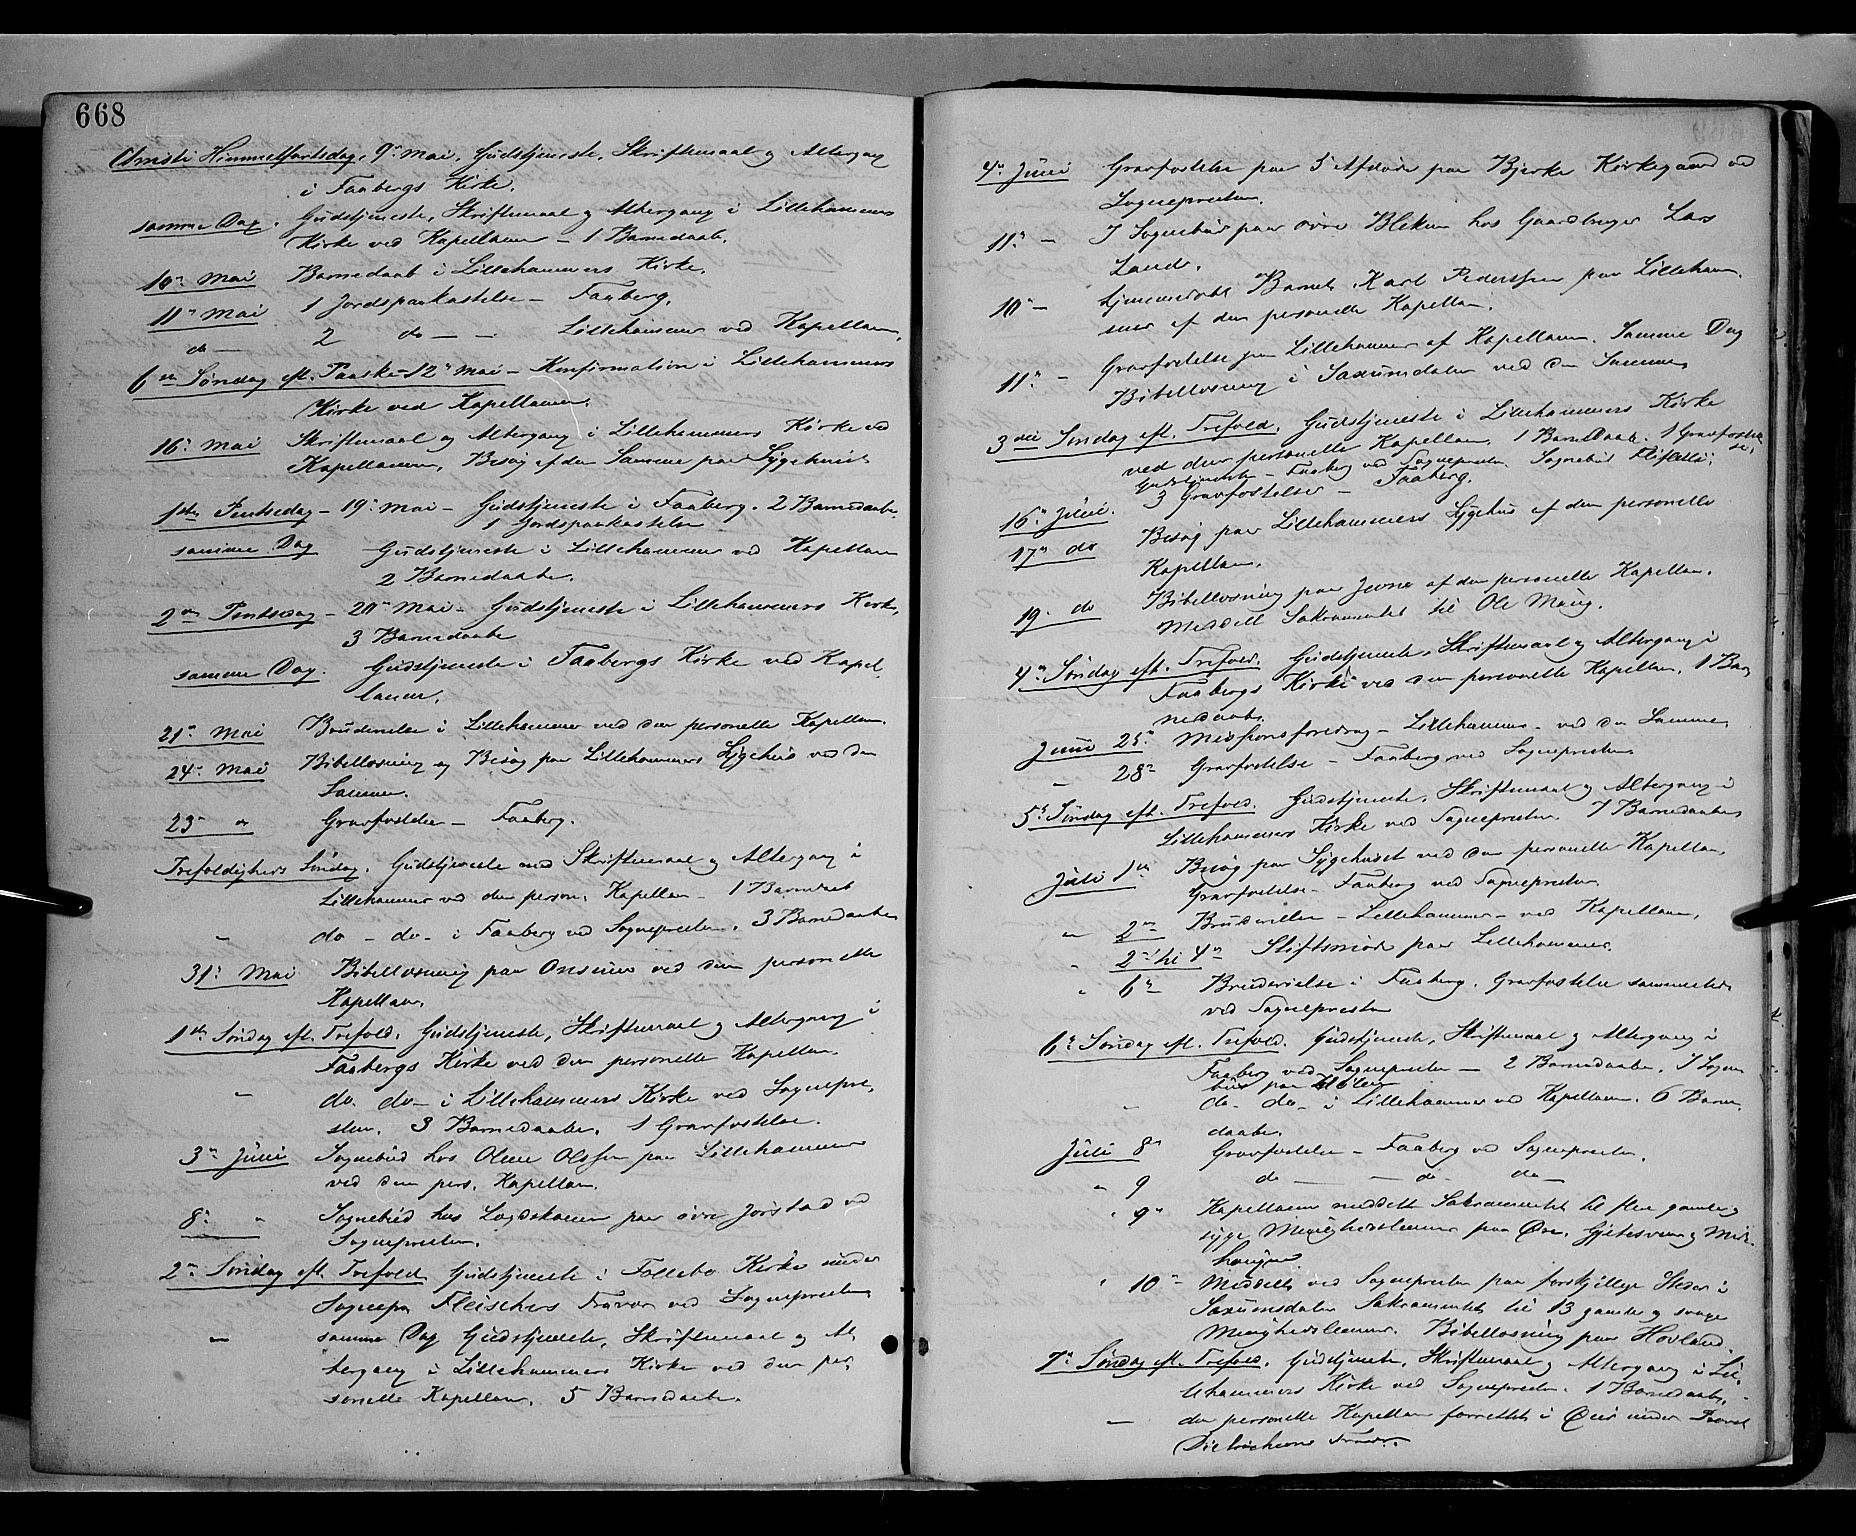 668
Christi Himmelfartsdag, 9n Mai, Gudstjeneste, Skriftemaal og Altergang
i Faabergs Kirke.
samme Dag. Gudstjeneste, Skriftemaal og Altergang i Lillehammers
Kirke ved Kapellanen – 1 Barnedaab.
10n Mai Barnedaab i Lillehammers Kirke.
11n Mai 1 Jordspaakastelse – Faaberg.
do — 2 do — — Lillehammer ved Kapellanen,
6te Søndag eft. Paaske – 12n Mai – Konfirmation i Lillehammers
Kirke ved Kapellanen.
16n Mai Skriftemaal og Altergang i Lillehammers Kirke ved
Kapellanen, Besøg af den Samme paa Sygehuset
1ste Pintsedag – 19n Mai – Gudstjeneste i Faaberg. 2 Barnedaabe
1 Jordspaakastelse
samme Dag Gudstjeneste i Lillehammer ved Kapellanen
2 Barnedaabe.
2den Pintsedag – 20n Mai – Gudstjeneste i Lillehammers Kirke,
3 Barnedaabe
samme Dag. Gudstjeneste i Faabergs Kirke ved Kapel
lanen.
21n Mai Brudevielse i Lillehammer ved den personelle Kapellan.
24n Mai Bibellæsning og Besøg paa Lillehammers Sygehus ved den
Samme.
23n " Gravfæstelse – Faaberg.
Trefoldigheds Søndag. Gudstjeneste med Skriftemaal og Altergang i
Lillehammer ved den person. Kapellan – 1 Barnedaab
" do – do – i Faaberg ved Sognepresten. 3 Barnedaabe
31n Mai Bibellæsning paa ved den personelle
Kapellan.
1ste Søndag eft. Trefold. Gudstjeneste, Skriftemaal og Altergang i
Faabergs Kirke ved den personelle Kapellan.
" do. do – i Lillehammers Kirke ved Sognepre,
sten. 3 Barnedaabe. 1 Gravfæstelse.
3n Juni Sognebud hos Olsen paa Lillehammer
ved den pers. Kapellan.
8n " Sognebud hos paa øvre Jørstad ved
Sognepresten.
2n Søndag eft. Trefold. Gudstjeneste i Follebo Kirke under
Sognepr. Fleischers Fravær ved Sognepresten
— samme Dag Gudstjeneste, Skriftemaal og Al
tergang i Lillehammers Kirke ved den per,
sonelle Kapellan. 5 Barnedaabe.
4n Juni Gravfæstelse paa 5 Afdøde paa Bjerke Kirkegaard ved
Sognepresten.
11n — I Sognebud paa øvre hos Gaardbruger Lars
10n — Hjemmedøbt Barnet Karl Pedersen paa Lilleham,
mer af den personelle Kapellan.
11n — Gravfæstelse paa Lillehammer af Kapellanen. Samme Dag
Bibellæsning i Saxumdalen ved den Samme.
3die Søndag eft. Trefold. Gudstjeneste i Lillehammers Kirke
ved den personelle Kapellan. 1 Barnedaab. 1 Gravfæstel
se.
Gudstjeneste – Faaberg ved Sognepresten. Sognebud
16n Juni. 3 Gravfæstelser – Faaberg.
17n do Besøg paa Lillehammers Sygehus af den personelle
Kapellan.
19n do Bibellæsning paa Jevne af den personelle Kapellan.
Meddelt Sakramentet til Ole
4n Søndag eft. Trefold. Gudstjeneste, Skriftemaal og Altergang i
Faabergs Kirke ved den personelle Kapellan. 1 Bar
nedaab.
Juni 25n Missionsforedrag – Lillehammer – ved den Samme
" 28n Gravfæstelse – Faaberg ved Sognepresten
5n Søndag eft. Trefold. Gudstjeneste, Skriftemaal og Altergang i
Lillehammers Kirke ved Sognepresten 7 Barnedaabe
Juli 1ste Besøg paa Sygehuset ved den personelle Kapellan,
Gravfæstelse – Faaberg ved Sognepresten.
" 2n Brudevielse – Lillehammer – ved Kapellanen,
" 2n til 4n Stiftsmøde paa Lillehammer.
" 6n Brudevielse i Faaberg. Gravfæstelse sammesteds
ved Sognepresten
6n Søndag eft. Trefold. Gudstjeneste, Skriftemaal og Altergang i
Faaberg ved Sognepresten – 2 Barnedaabe. 1 Sogne
bud paa
" do – do – i Lillehammer ved Kapellanen. 6 Barne,
daabe.
Juli 8n Gravfæstelse – Faaberg ved Sognepresten.
" 9 do — — do – do —
" 9n Kapellanen meddelt Sakramentet til flere gamle og
syge Menighedslemmer paa
" 10n Meddelt ved Sognepresten paa forskjellige Steder i
Saxumsdalen Sakramentet til 13 gamle og svage
Menighedslemmer. Bibellæsning paa Hovland.
7n Søndag eft. Trefold. Gudstjeneste, Skriftemaal og Altergang i Lil,
lehammers Kirke ved Sognepresten. 1 Barnedaab.
— den personelle Kapellan forrettet i Øier under Provst
Dietrichsons Fravær.